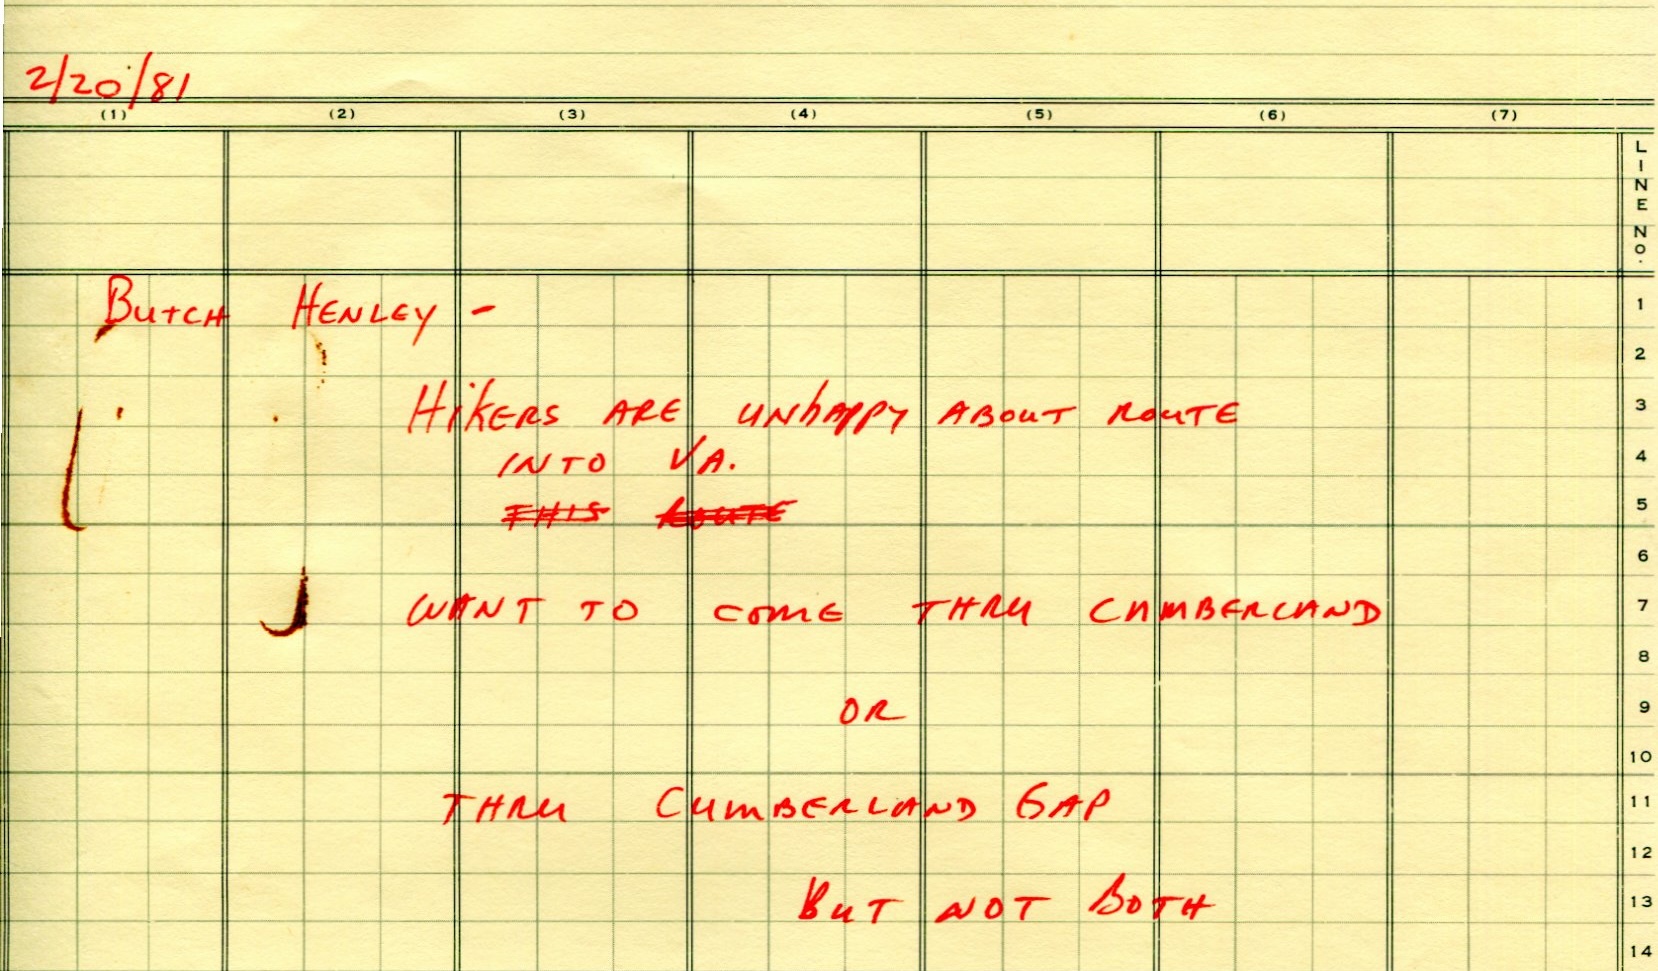 2/20/81
(1) (2) (3) (4) (5) (6) (7)
LINE NO.
BUTCH HENLEY - 1
2
HIKERS ARE UNHAPPY ABOUT ROUTE 3
INTO VA. 4
THIS ROUTE 5
6
WANT TO COME THRU CUMBERLAND 7
8
OR 9
10
THRU CUMBERLAND GAP 11
12
BUT NOT BOTH 13
14